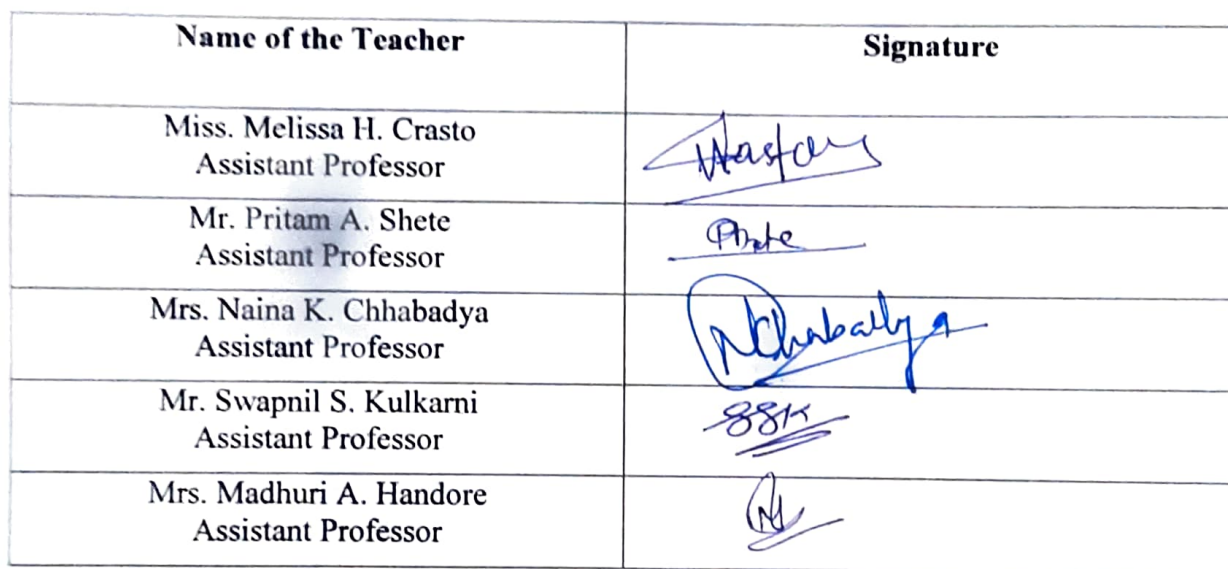 Name of the Teacher
Signature
Miss. Melissa H. Crasto
Assistant Professor
Mr. Pritam A. Shete
Assistant Professor
Mrs. Naina K. Chhabadya
Assistant Professor
Mr. Swapnil S. Kulkarni
Assistant Professor
SSK
Mrs. Madhuri A. Handore
Assistant Professor